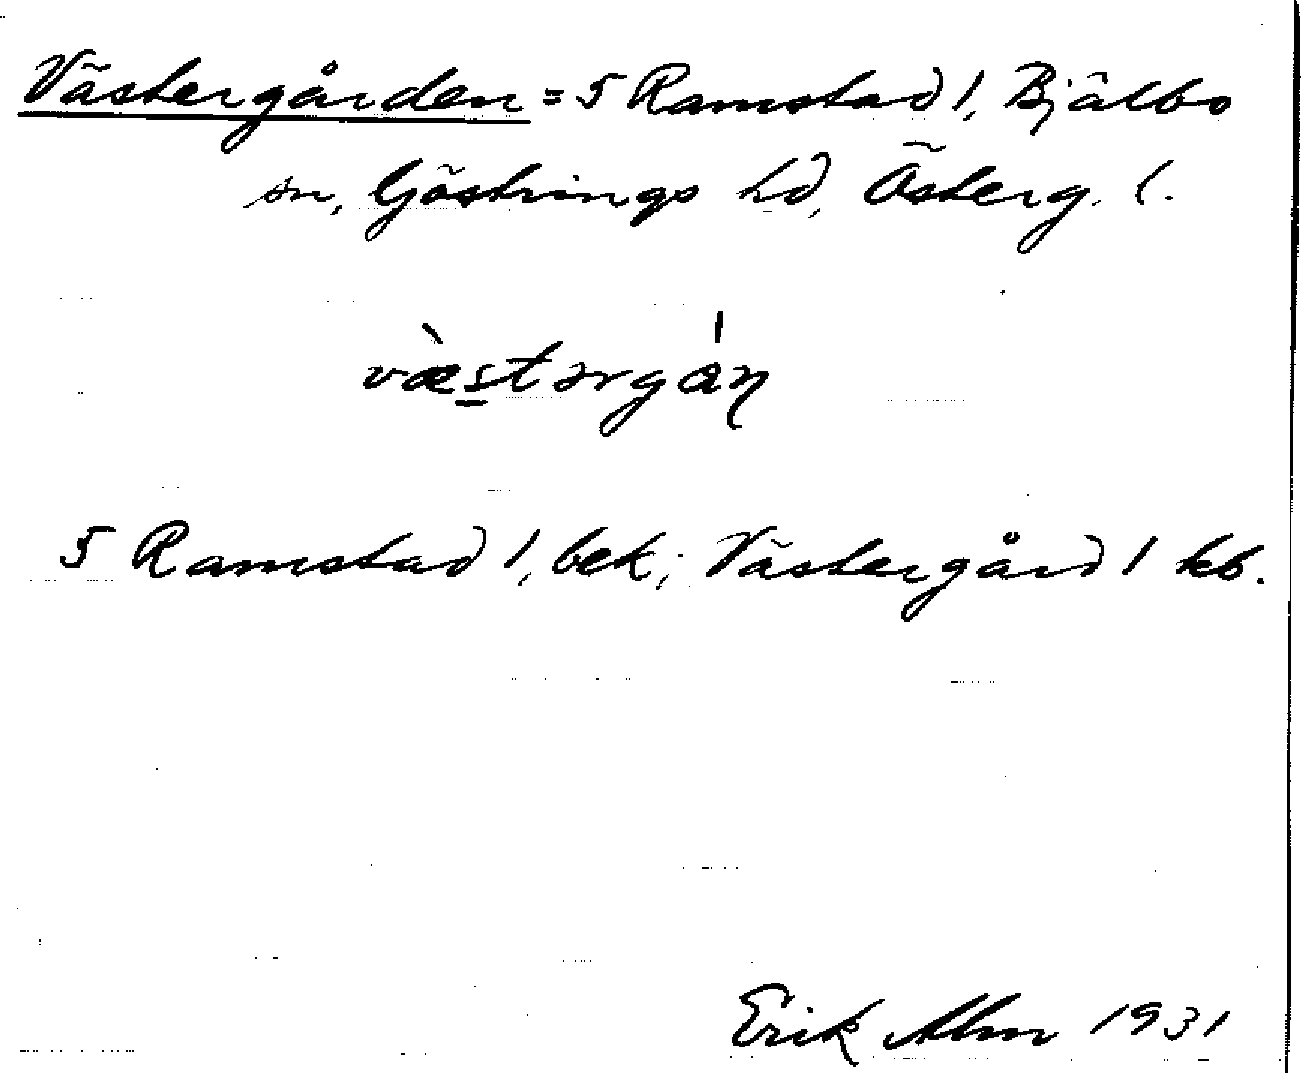 Västergården = 5 Ramstad 1, Bjälbo
sn, Göstrings hd, Österg. l.
væ̀stərgáṇ
5 Ramstad 1, bek; Västergård 1 kb.
Erik Alm 1931